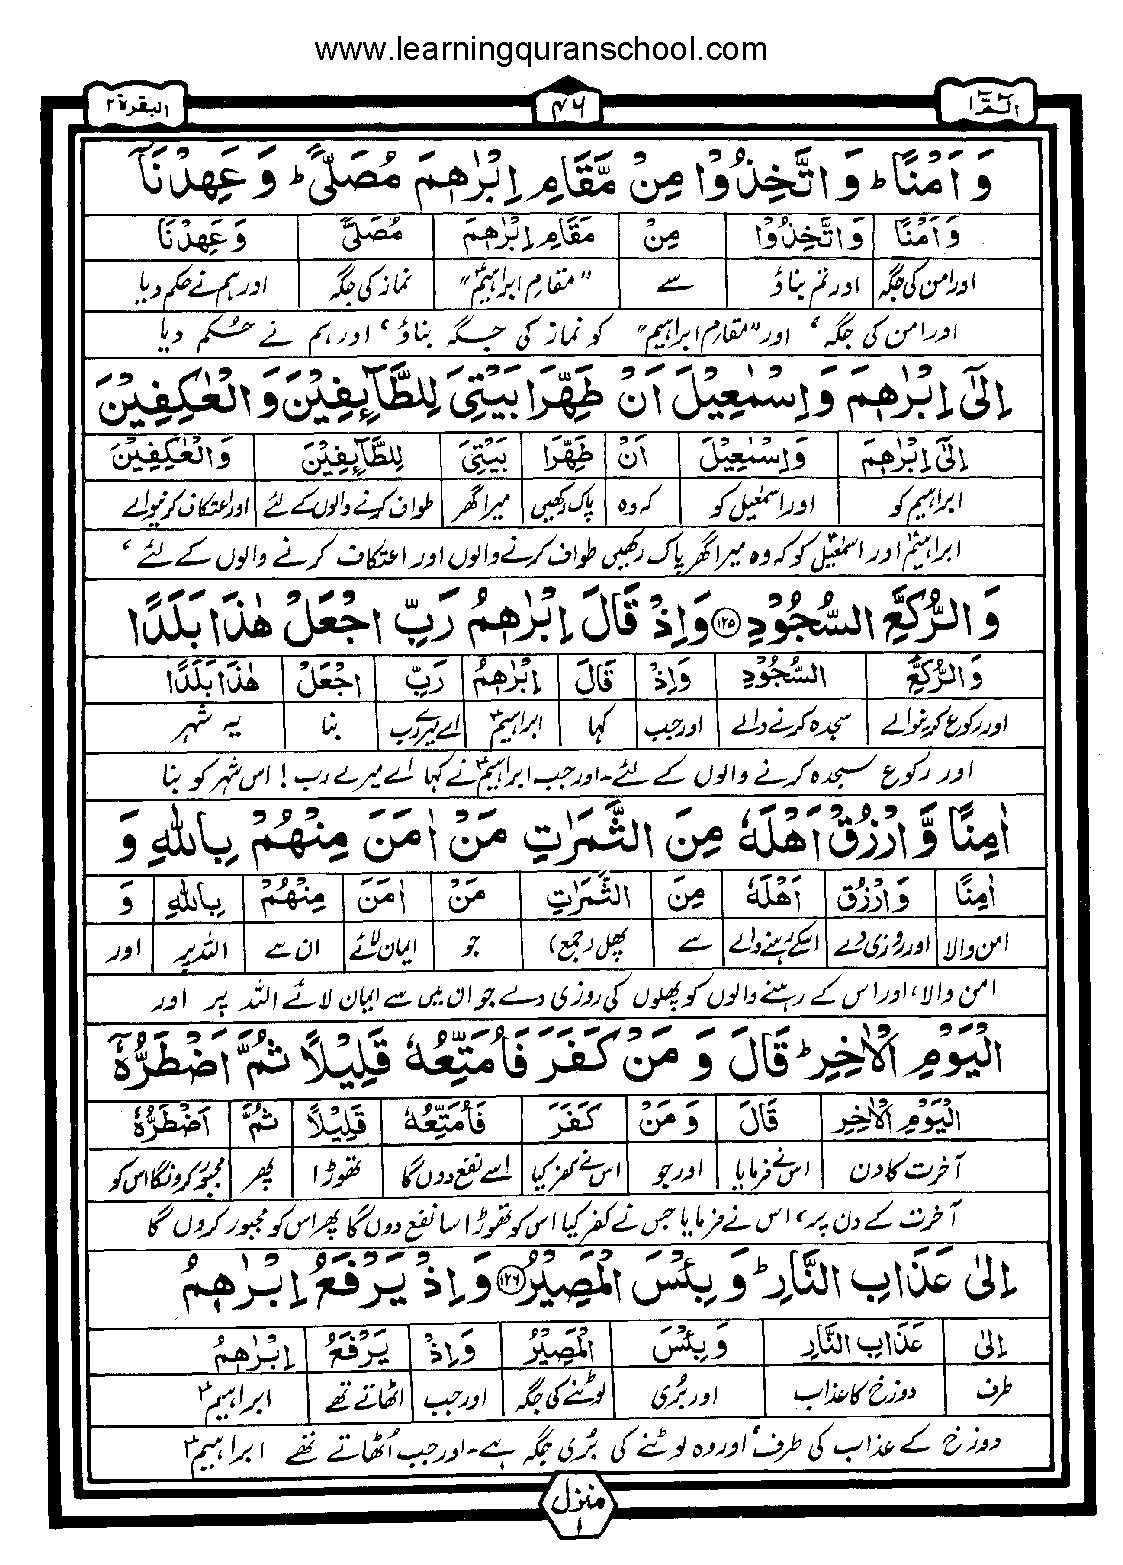 www.learningquranschool.com
الٓمّٓ ١ ۴۶ البقرة ٢
وَ اَمْنًا ؕ وَ اتَّخِذُوْا مِنْ مَّقَامِ اِبْرٰهٖمَ مُصَلًّى ؕ وَ عَهِدْنَاۤ
وَ اَمْنًا وَ اتَّخِذُوْا مِنْ مَقَامِ اِبْرٰهٖمَ مُصَلًّى وَ عَهِدْنَاۤ
اور امن کی جگہ اور تم بناؤ سے "مقامِ ابراہیمؑ" نماز کی جگہ اور ہم نے حکم دیا
اور امن کی جگہ، اور "مقامِ ابراہیم" کو نماز کی جگہ بناؤ، اور ہم نے حُکم دیا
اِلٰۤى اِبْرٰهٖمَ وَ اِسْمٰعِیْلَ اَنْ طَهِّرَا بَیْتِیَ لِلطَّآىِٕفِیْنَ وَ الْعٰكِفِیْنَ
اِلٰۤى اِبْرٰهٖمَ وَ اِسْمٰعِیْلَ اَنْ طَهِّرَا بَیْتِیَ لِلطَّآىِٕفِیْنَ وَ الْعٰكِفِیْنَ
ابراہیم کو اور اسمٰعیل کو کہ وہ پاک رکھیں میرا گھر طواف کرنے والوں کے لئے اور اعتکاف کرنیوالے
ابراہیمؑ اور اسمٰعیلؑ کو کہ وہ میرا گھر پاک رکھیں طواف کرنے والوں اور اعتکاف کرنے والوں کے لئے،
وَ الرُّكَّعِ السُّجُوْدِ ۝۱۲۵ وَ اِذْ قَالَ اِبْرٰهٖمُ رَبِّ اجْعَلْ هٰذَا بَلَدًا
وَ الرُّكَّعِ السُّجُوْدِ وَ اِذْ قَالَ اِبْرٰهٖمُ رَبِّ اجْعَلْ هٰذَا بَلَدًا
اور رکوع کرنیوالے سجدہ کرنے والے اور جب کہا ابراہیمؑ اے میرے رب بنا یہ شہر
اور رکوع سجدہ کرنے والوں کے لئے۔ اور جب ابراہیمؑ نے کہا اے میرے رب! اس شہر کو بنا
اٰمِنًا وَّ ارْزُقْ اَهْلَهٗ مِنَ الثَّمَرٰتِ مَنْ اٰمَنَ مِنْهُمْ بِاللّٰهِ وَ
اٰمِنًا وَ ارْزُقْ اَهْلَهٗ مِنَ الثَّمَرٰتِ مَنْ اٰمَنَ مِنْهُمْ بِاللّٰهِ وَ
امن والا اور روزی دے اسکے رہنے والے سے پھل (جمع) جو ایمان لائے ان سے اللہ پر اور
امن والا، اور اس کے رہنے والوں کو پھلوں کی روزی دے جو ان میں سے ایمان لائے اللہ پر اور
الْیَوْمِ الْاٰخِرِ ؕ قَالَ وَ مَنْ كَفَرَ فَاُمَتِّعُهٗ قَلِیْلًا ثُمَّ اَضْطَرُّهٗۤ
الْیَوْمِ الْاٰخِرِ قَالَ وَ مَنْ كَفَرَ فَاُمَتِّعُهٗ قَلِیْلًا ثُمَّ اَضْطَرُّهٗۤ
آخرت کا دن اس نے فرمایا اور جو اس نے کفر کیا اسے نفع دوں گا تھوڑا پھر مجبور کرونگا اس کو
آخرت کے دن پر، اس نے فرمایا جس نے کفر کیا اس کو تھوڑا سا نفع دوں گا پھر اس کو مجبور کروں گا
اِلٰى عَذَابِ النَّارِ ؕ وَ بِئْسَ الْمَصِیْرُ ۝۱۲۶ وَ اِذْ یَرْفَعُ اِبْرٰهٖمُ
اِلٰى عَذَابِ النَّارِ وَ بِئْسَ الْمَصِیْرُ وَ اِذْ یَرْفَعُ اِبْرٰهٖمُ
طرف دوزخ کا عذاب اور بُری لوٹنے کی جگہ اور جب اٹھاتے تھے ابراہیمؑ
دوزخ کے عذاب کی طرف، اور وہ لوٹنے کی بُری جگہ ہے۔ اور جب اُٹھاتے تھے ابراہیمؑ
منزل ١